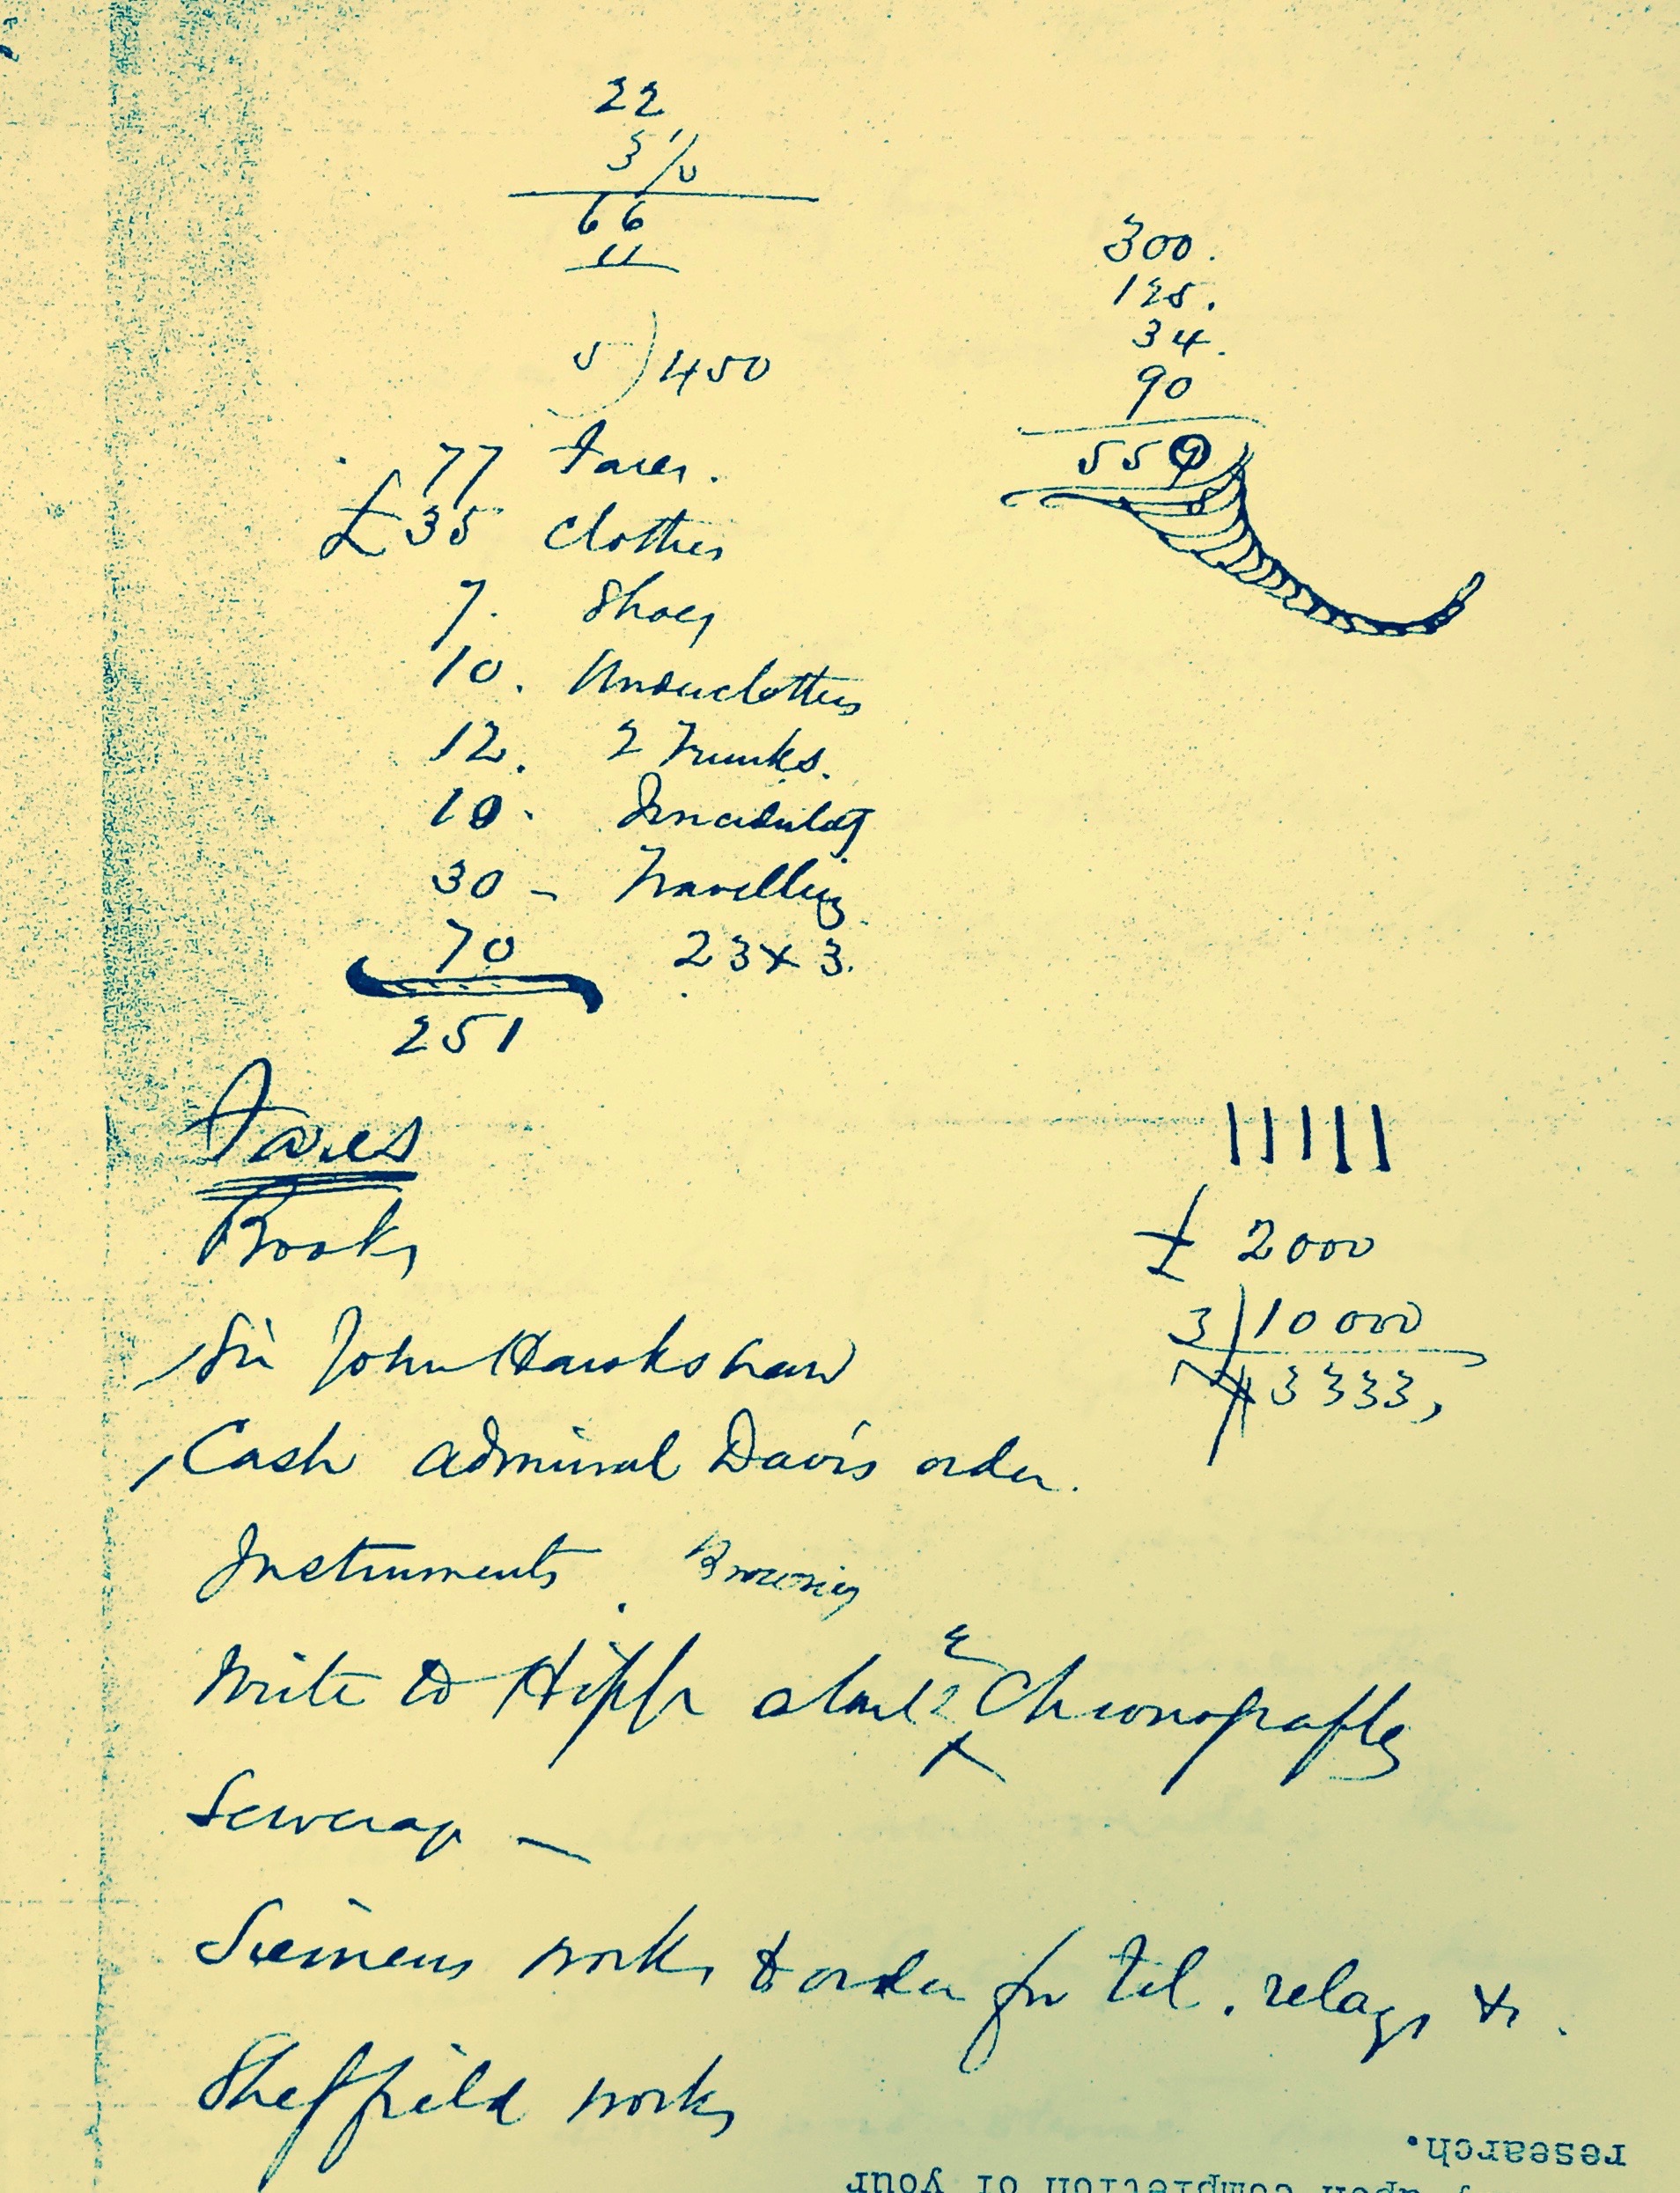 22
3 1/0
66
11
5 ) 450
300.
125.
34.
90
559
8
77 fares.
£35 Clothes
7. Shoes
10. Underclothes
12. 2 Trunks.
10. Incidentals
30 – Travelling
70 23 x 3.
251
Fares
Books
Sir John Hawkshaw
Cash Admiral Davis order.
Instruments. Browning
Write to Hipp about 2 Chronographs
Siemens works & order for tel. relays &c.
Sheffield works
|||||
£ 2000
3 | 10 000
3333,
upon completion of your
research.